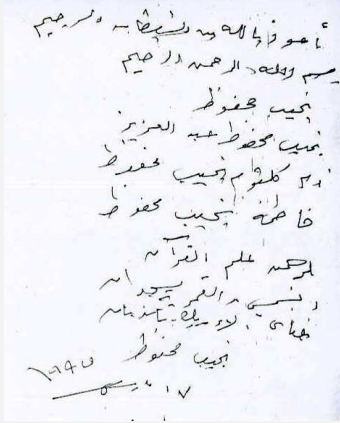 أعوذ بالله من الشيطان الرجيم
بسم الله الرحمن الرحيم
نجيب محفوظ
نجيب محفوظ عبد العزيز
أم كلثوم نجيب محفوظ
فاطمة نجيب محفوظ
الرحمن علم القرآن
الشمس والقمر يسجدان
فبأي آلاء ربك تكذبان
نجيب محفوظ
١٧ مارس ١٩٩٥